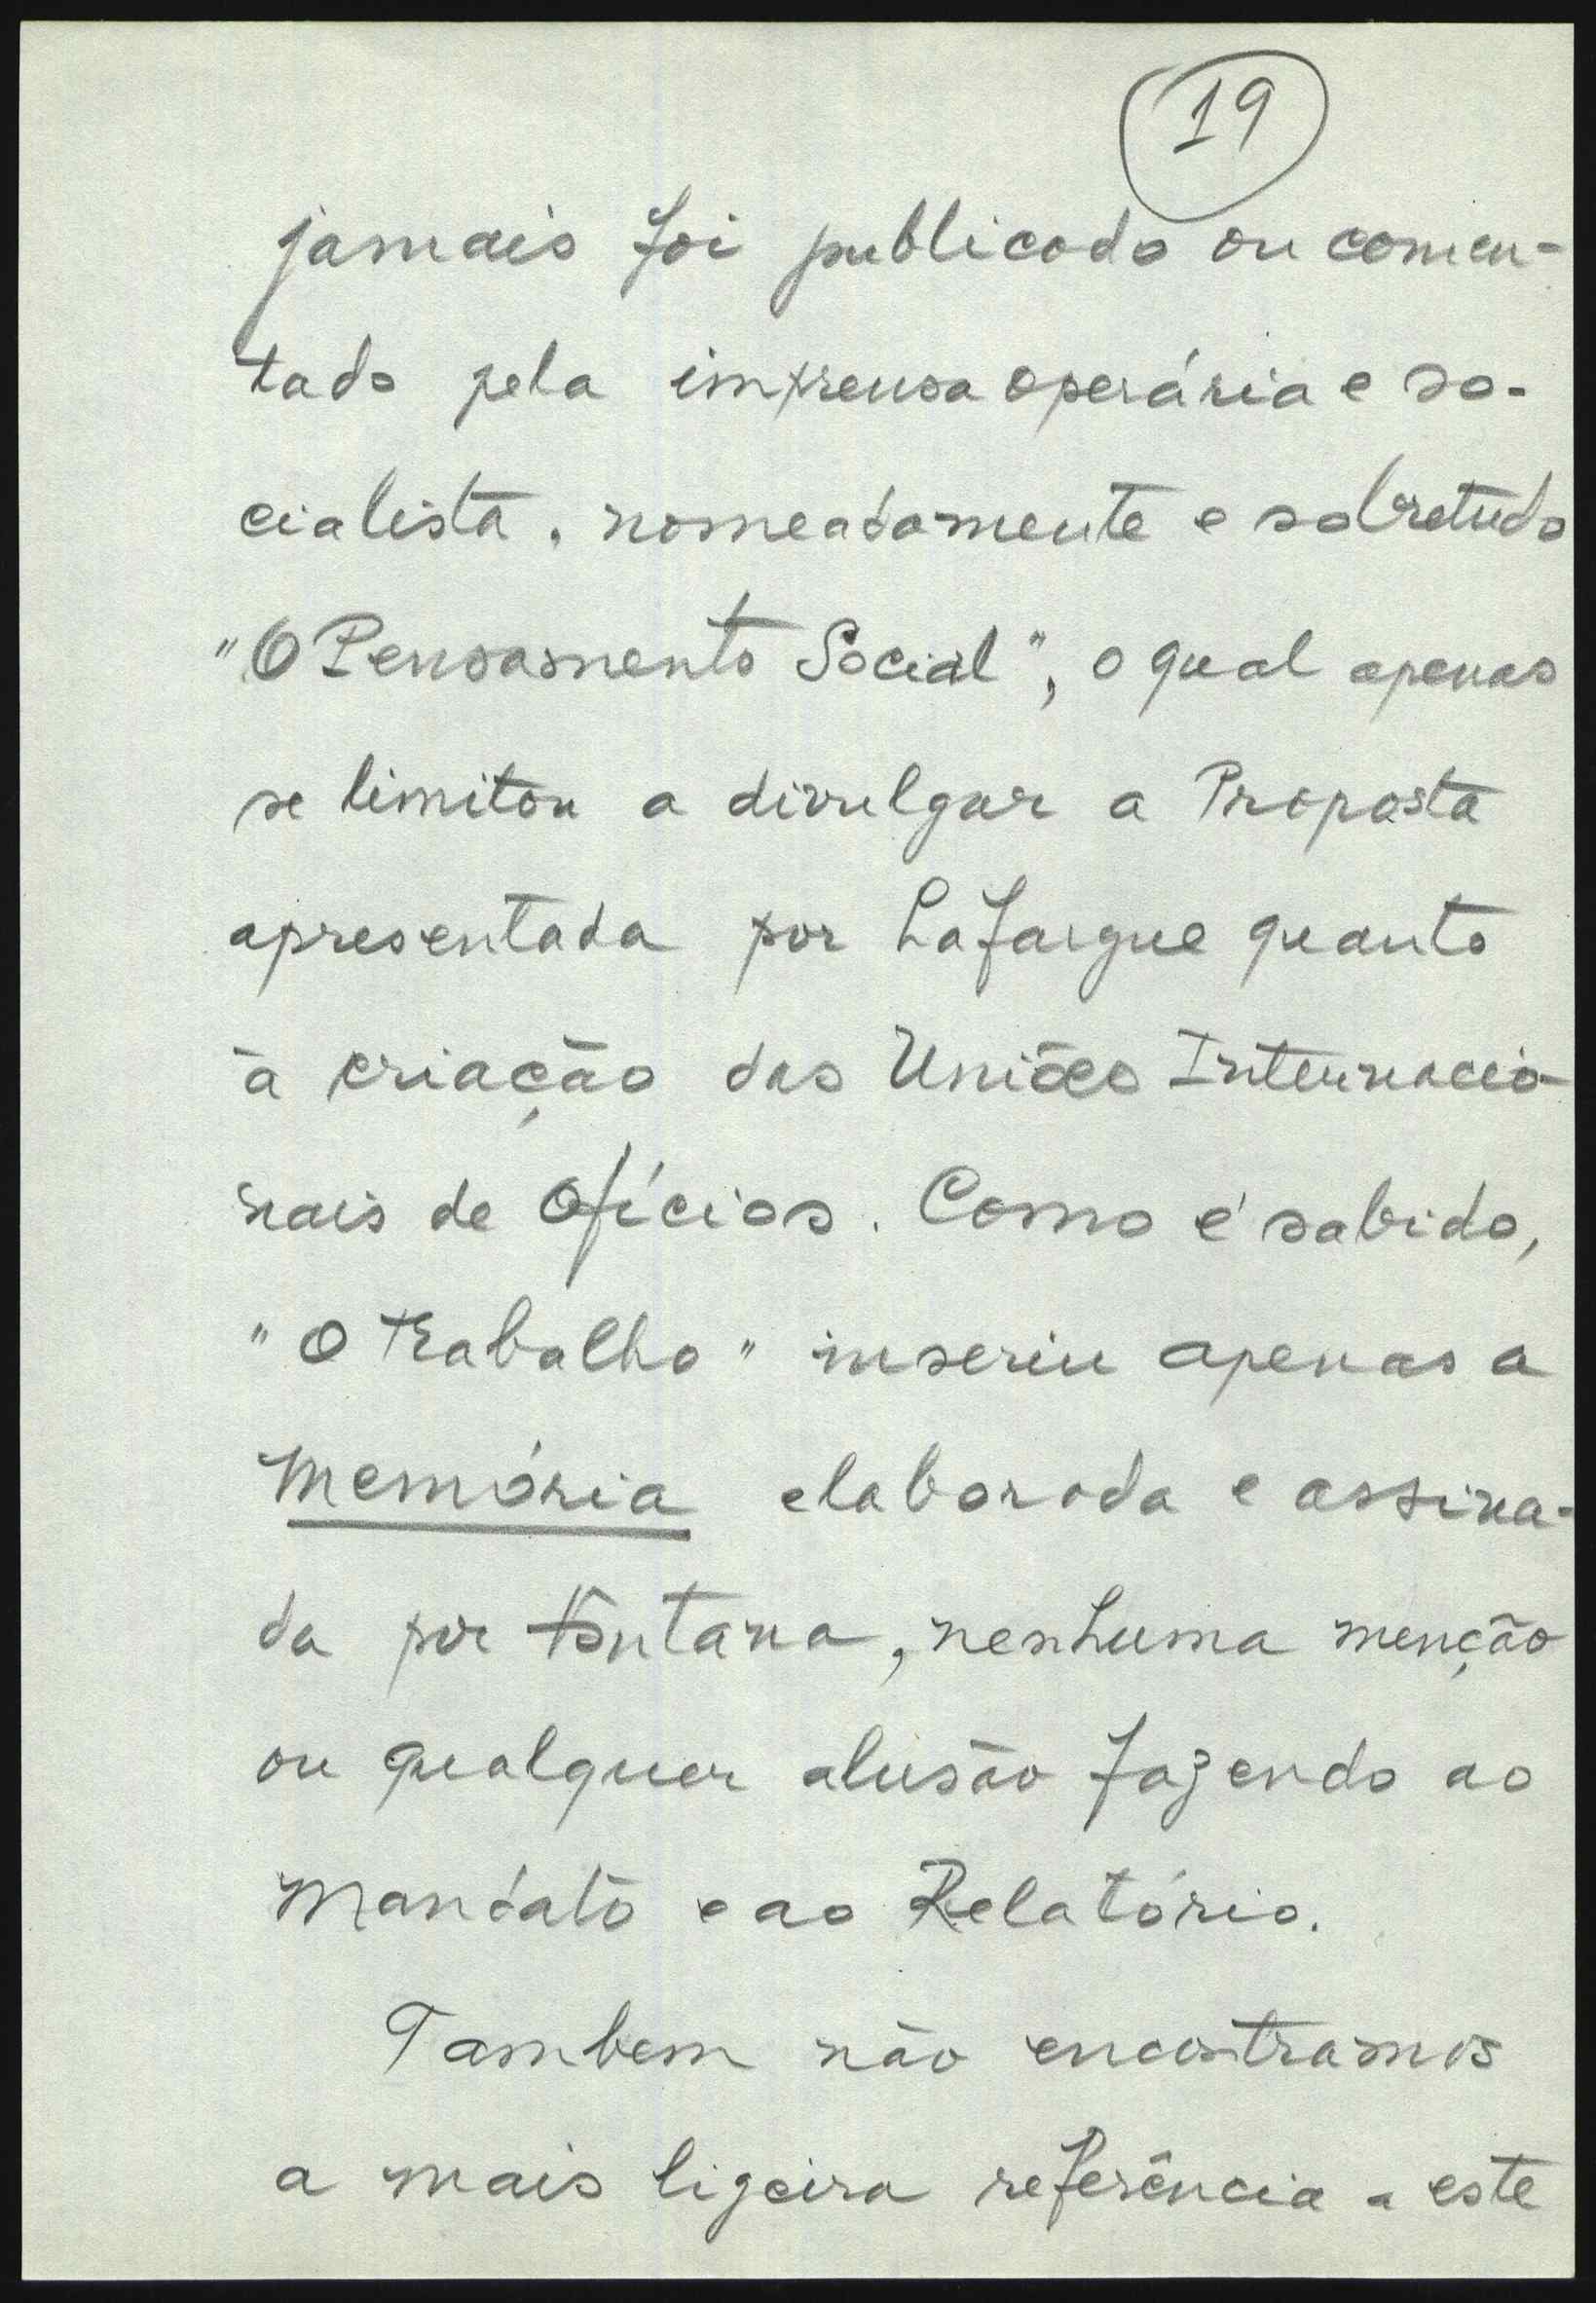 19
jamais foi publicado ou comen-
tado pela imprensa operária e so-
cialista, nomeadamente e sobretudo
"O Pensamento Social", o qual apenas
se limitou a divulgar a Proposta
apresentada por Lafargue quanto
à criação das Uniões Internacio-
nais de Ofícios. Como é sabido,
"O Trabalho" inseriu apenas a
Memória elaborada e assina-
da por Fontana, nenhuma menção
ou qualquer alusão fazendo ao
Mandato e ao Relatório.
Tambem não encontramos
a mais ligeira referência a este